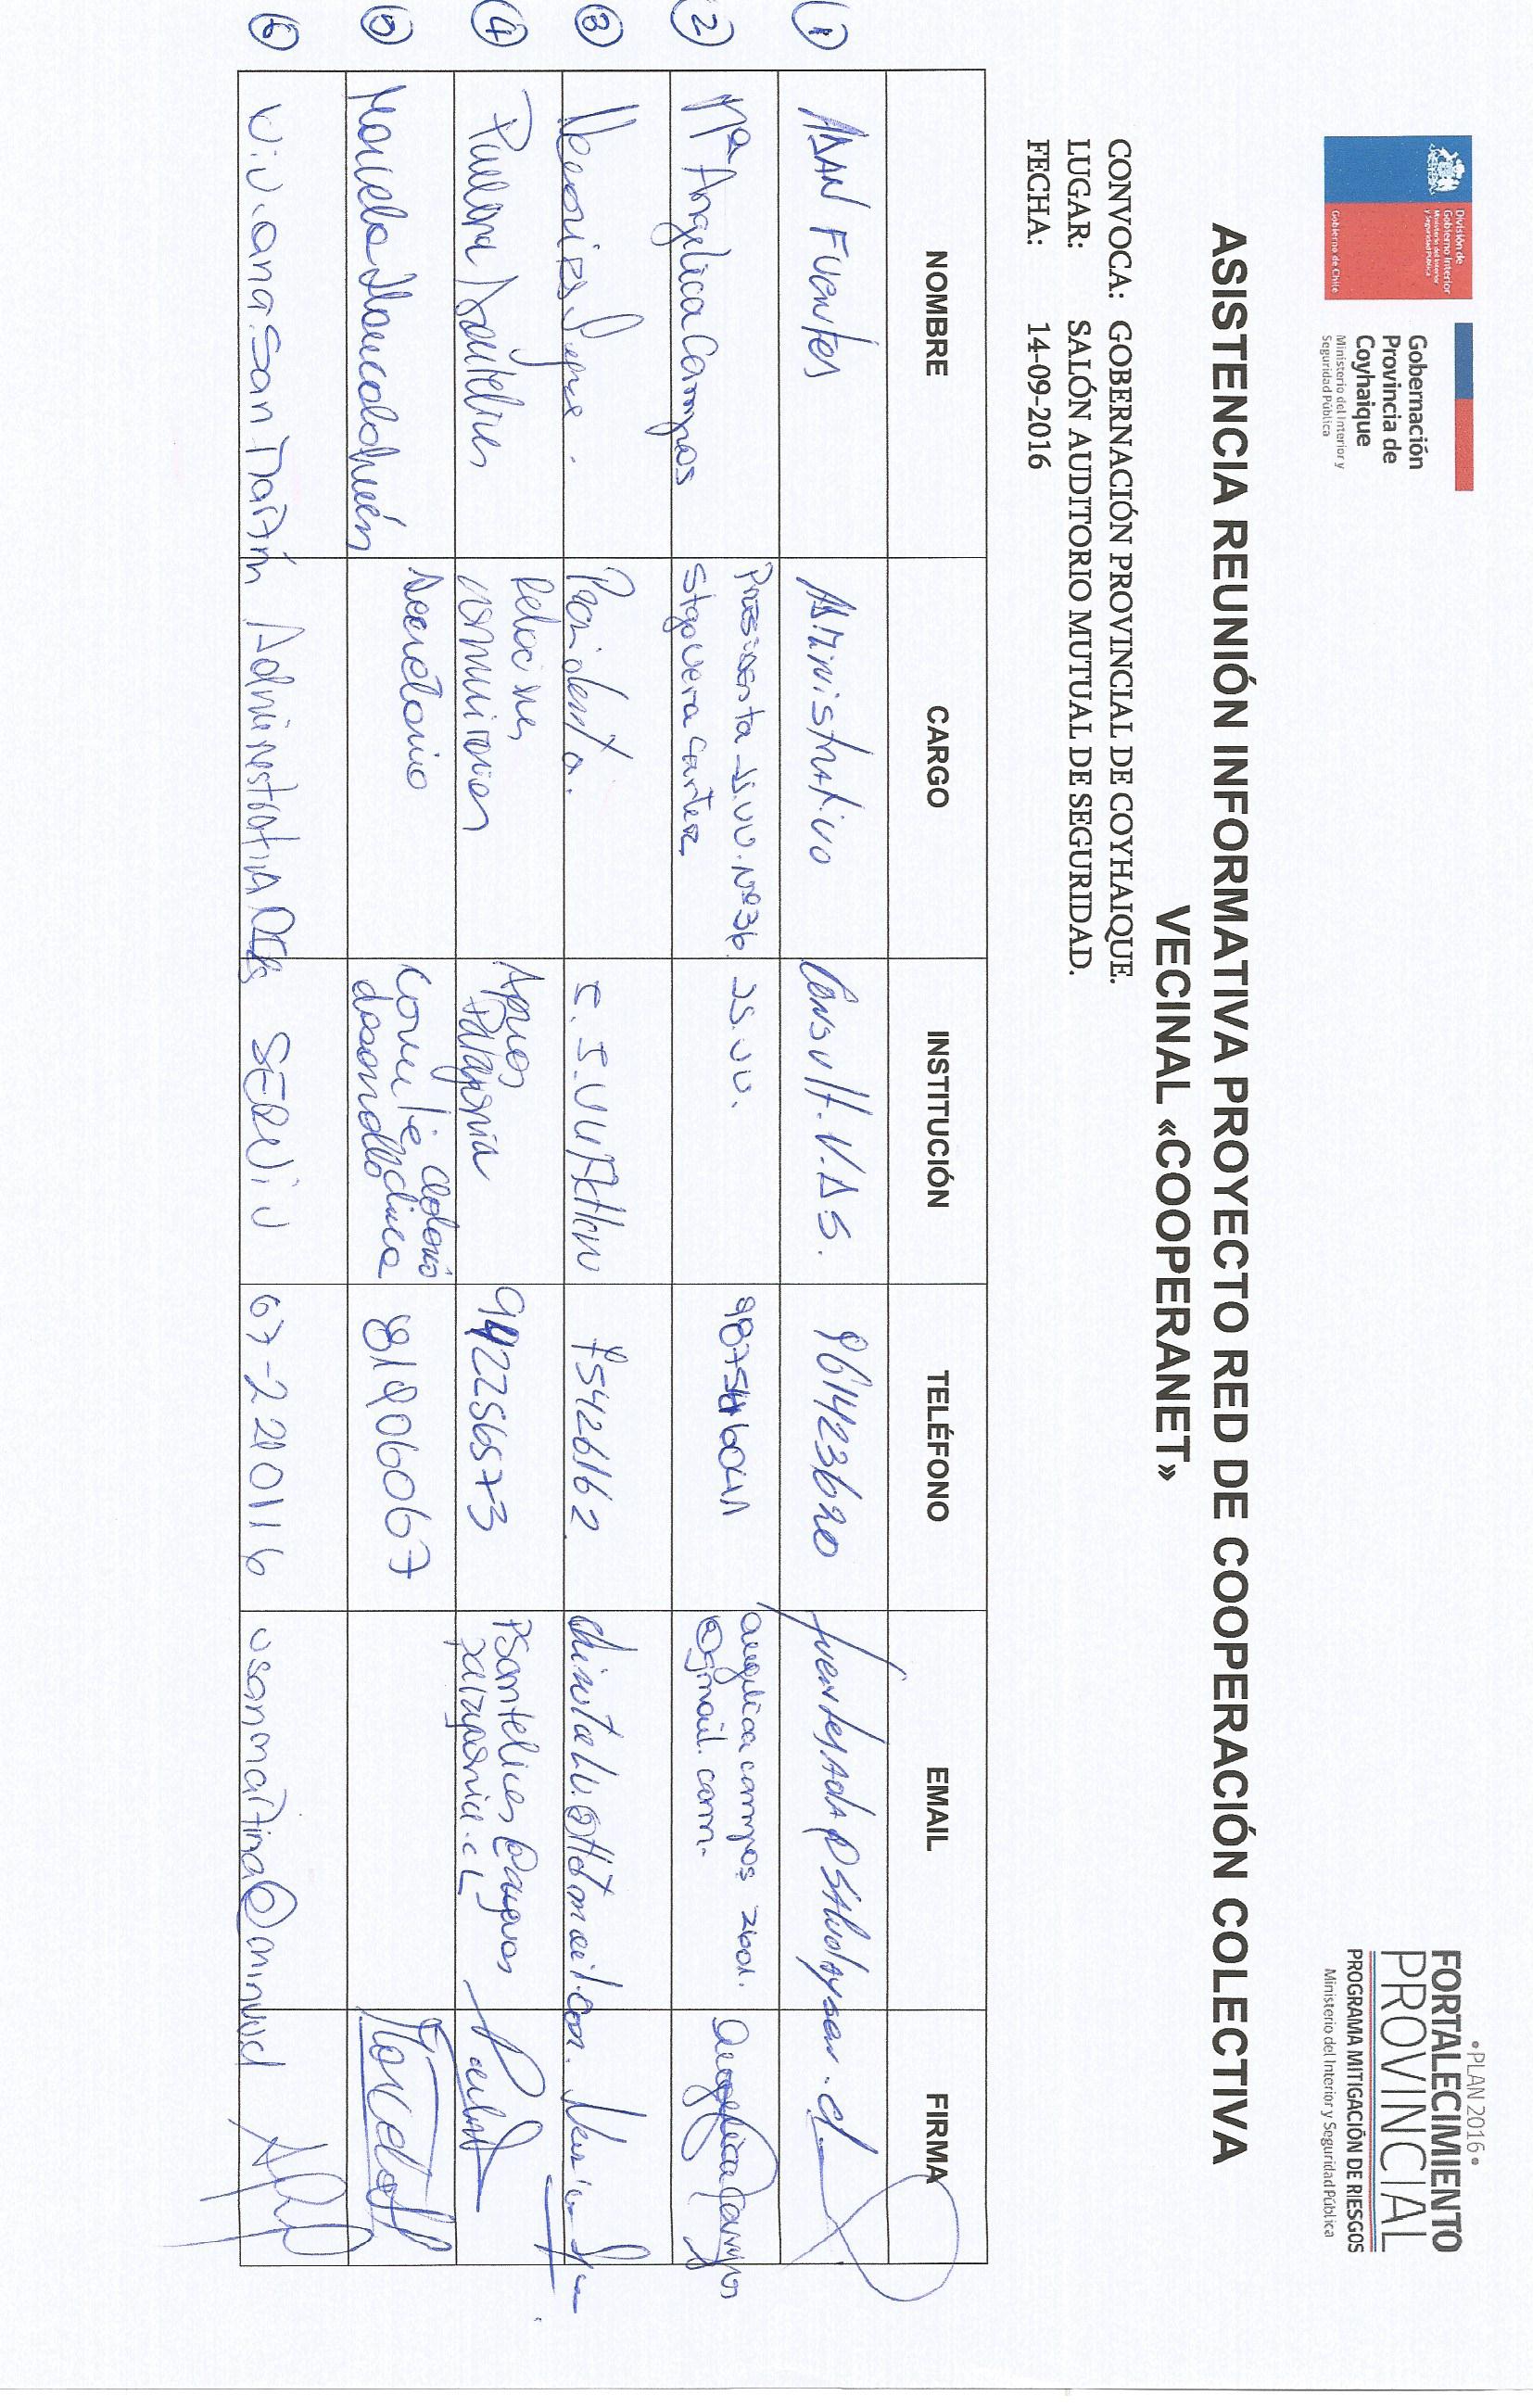 División de
Gobierno Interior
Ministerio del Interior
y Seguridad Pública
Gobierno de Chile
Gobernación
Provincia de
Coyhaique
Ministerio del Interior y
Seguridad Pública
•PLAN 2016•
FORTALECIMIENTO
PROVINCIAL
PROGRAMA MITIGACIÓN DE RIESGOS
Ministerio del Interior y Seguridad Pública
ASISTENCIA REUNIÓN INFORMATIVA PROYECTO RED DE COOPERACIÓN COLECTIVA
VECINAL «COOPERANET»
CONVOCA: GOBERNACIÓN PROVINCIAL DE COYHAIQUE.
LUGAR: SALÓN AUDITORIO MUTUAL DE SEGURIDAD.
FECHA: 14-09-2016
NOMBRE CARGO INSTITUCIÓN TELÉFONO EMAIL FIRMA
1 ADAN FUENTES ADMINISTRATIVO CONSULT. V.D.S. 961423620 fuentesada@saludaysen.cl
2 Mª Angelica Campos
Presidenta JJ.VV. Nº 36
Stgo Vera Cartez
JJ.VV.
angelica campos 2601.
@gmail.com.
Angelica Campos
3 Presidenta. 75426162
4 Paulina Santelices
Relaciones
comunitarias
Aguas
Patagonia
942256573
PSantelices@aguas
patagonia.cL
5 Marcela
Secretaria
desarrollo
81906067
6 Viviana San Martín Administrativa SERVIU 67-2210116 vsanmartina@minvu.cl